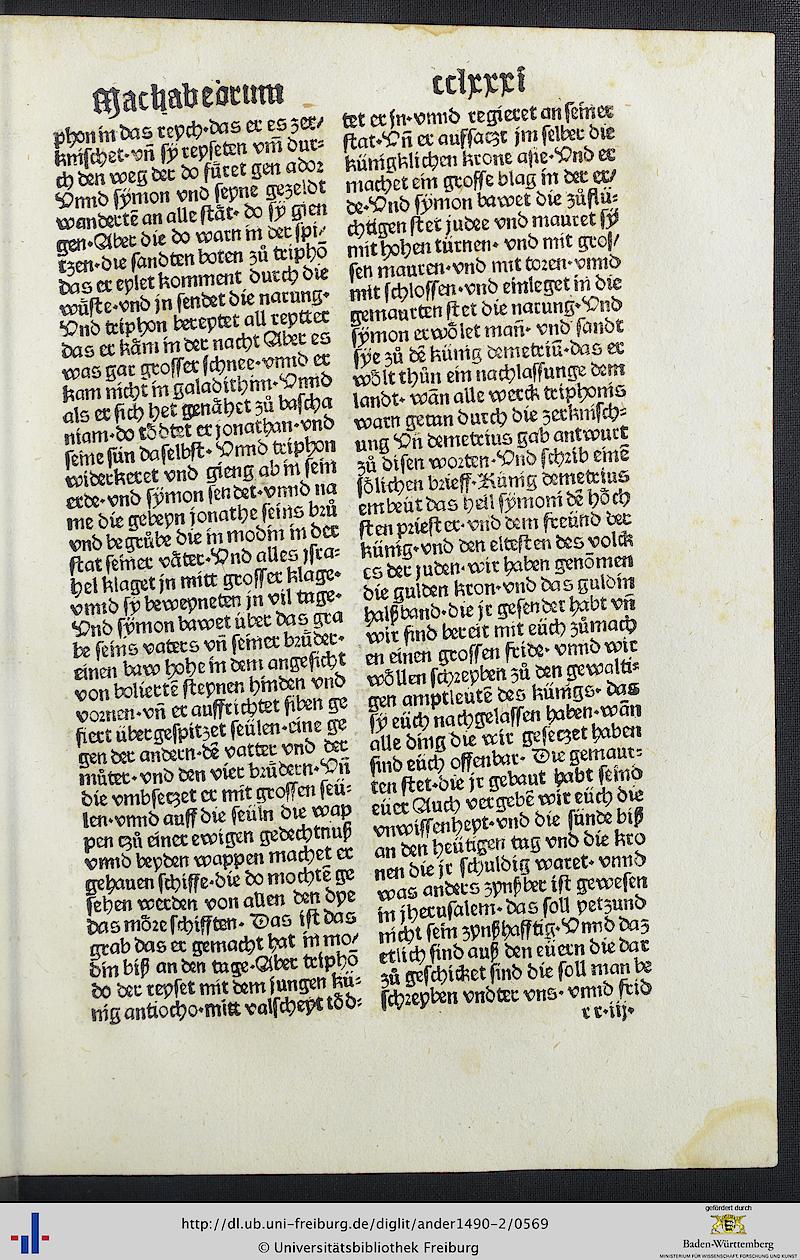 Machabeorum
cclxxxi
phon in das reych·das er es zer/
knischet·vñ sy reyseten vm̃ dur-
ch den weg der do fu̇ret gen ador
Vnnd symon vnd seyne gezeldt
wandertẽ an alle stät· do sy gien
gen·Aber die do warn in der spi/
tzen·die sandten boten zů triphõ
das er eylet komment durch die
wüste·vnd jn sendet die narung·
Vnd triphon bereytet all reytter
das er käm in der nacht Aber es
was gar grosser schnee·vnnd er
kam nicht in galadithim·Vnnd
als er sich het genähet zů bascha
niam·do tödtet er jonathan·vnd
seine sün daselbst· Vnnd triphon
widerkeret vnd gieng ab in sein
erde·vnd symon sendet·vnnd na
me die gebeyn jonathe seins brů
vnd begrůbe die in modin in der
stat seiner väter·Vnd alles jsra-
hel klaget jn mitt grosser klage·
vnnd sy beweyneten jn vil tage·
Vnd symon bawet über das gra
be seins vaters vñ seiner brüder·
einen baw hohe in dem angesicht
von boliertẽ steynen hinden vnd
vornen·vñ er auffrichtet siben ge
siert übergespitzet seülen·eine ge
gen der andern·dẽ vatter vnd der
můter·vnd den vier brüdern·Vñ
die vmbsetzet er mit grossen seü-
len·vnnd auff die seüln die wap
pen tzů einer ewigen gedechtnuß
vnnd beyden wappen machet er
gehauen schiffe·die do mochtẽ ge
sehen werden von allen den dye
das möre schifften· Das ist das
grab das er gemacht hat in mo/
din biß an den tage·Aber triphõ
do der reyset mit dem jungen kü-
nig antiocho·mitt valscheyt töd-
tet er jn·vnnd regieret an seiner
stat·Vñ er auffsatzt jm selber die
künigklichen krone asie·Vnd er
machet ein grosse blag in der er/
de·Vnd symon bawet die zůflü-
chtigen stet judee vnd mauret sy
mit hohen türnen· vnd mit gros/
sen mauren·vnd mit toren·vnnd
mit schlossen·vnd einleget in die
gemaurten stet die narung·Vnd
symon erwölet man̄· vnd sandt
sye zů dẽ künig demetriũ·das er
wölt thůn ein nachlassunge dem
landt·wãn alle werck triphonis
warn getan durch die zerknisch-
ung Vñ demetrius gab antwurt
zů disen worten·Vnd schrib einẽ
sölichen brieff·Künig demetrius
embeüt das heil symoni dẽ höch
sten priester·vnd dem freünd der
künig·vnd den eltesten des volck
es der juden·wir haben genõmen
die gulden kron·vnd das guldin
halßband·die jr gesendet habt vñ
wir sind bereit mit eüch zůmach
en einen grossen fride·vnnd wir
wöllen schreyben zů den gewalti-
gen amptleutẽ des künigs· das
sy eüch nachgelassen haben·wãn
alle ding die wir gesetzet haben
sind eüch offenbar· Die gemaur-
ten stet·die jr gebaut habt seind
eüer Auch vergebẽ wir eüch die
vnwissenheyt·vnd die sünde biß
an den heütigen tag vnd die kro
nen die jr schuldig waret·vnnd
was anders zynßber ist gewesen
in jherusalem·das soll yetzund
nicht sein zynßhafftig·Vnnd das
etlich sind auß den eüern die dar
zů geschicket sind die soll man be
schreyben vndter vns·vnnd frid
rr·iij·
http://dl.ub.uni-freiburg.de/diglit/ander1490-2/0569
© Universitätsbibliothek Freiburg
gefördert durch
Baden-Württemberg
MINISTERIUM FÜR WISSENSCHAFT, FORSCHUNG UND KUNST